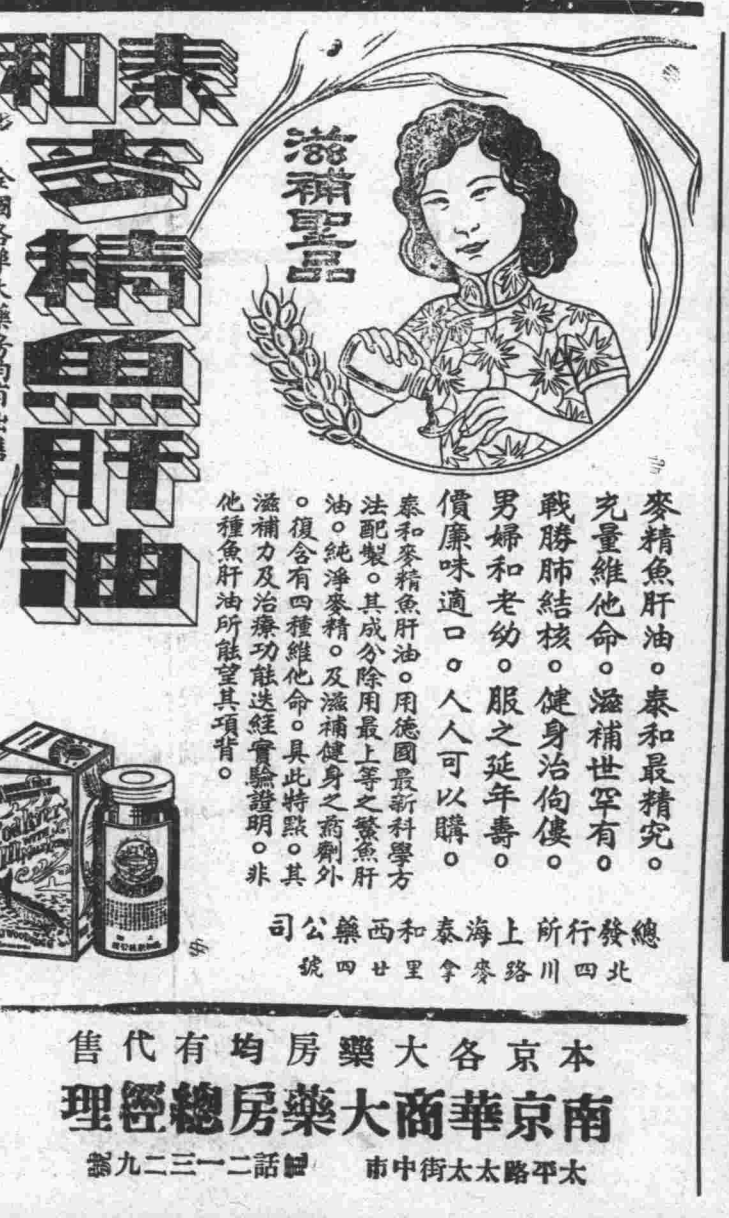 泰和
麥精魚肝油
滋補聖品
麥精魚肝油。泰和最精究。
充量維他命。滋補世罕有。
戰勝肺結核。健身治佝僂。
男婦和老幼。服之延年壽。
價廉味適口。人人可以購。
泰和麥精魚肝油。用德國最新科學方
法配製。其成分除用最上等之鱉魚肝
油。純淨麥精。及滋補健身之药劑外
。復含有四種維他命。具此特點。其
滋補力及治療功能迭經實驗證明。非
他種魚肝油所能望其項背。
總發行所上海泰和西藥公司
北四川路麥拿里廿四號
本京各大藥房均有代售
南京華商大藥房總經理
太平路太太街中市
電話二一三二九號